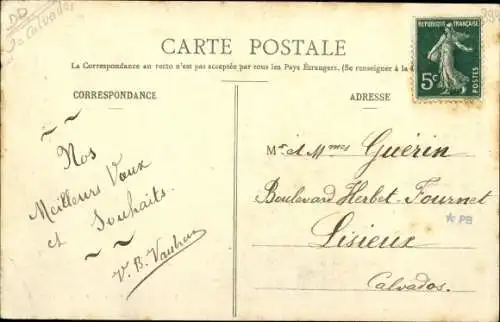 DD
Calvados
CARTE POSTALE
La Correspondance au recto n'est pas acceptée par tous les Pays Étrangers. (Se renseigner à la
CORRESPONDANCE
ADRESSE
REPUBLIQUE FRANÇAISE
5c
POSTES
~ ~
Nos
Meilleurs Vœux
et Souhaits.
~ ~
V. B.
Mr et Mmes Guérin
Boulevard Herbet-Fournet
Lisieux
*PB
Calvados.